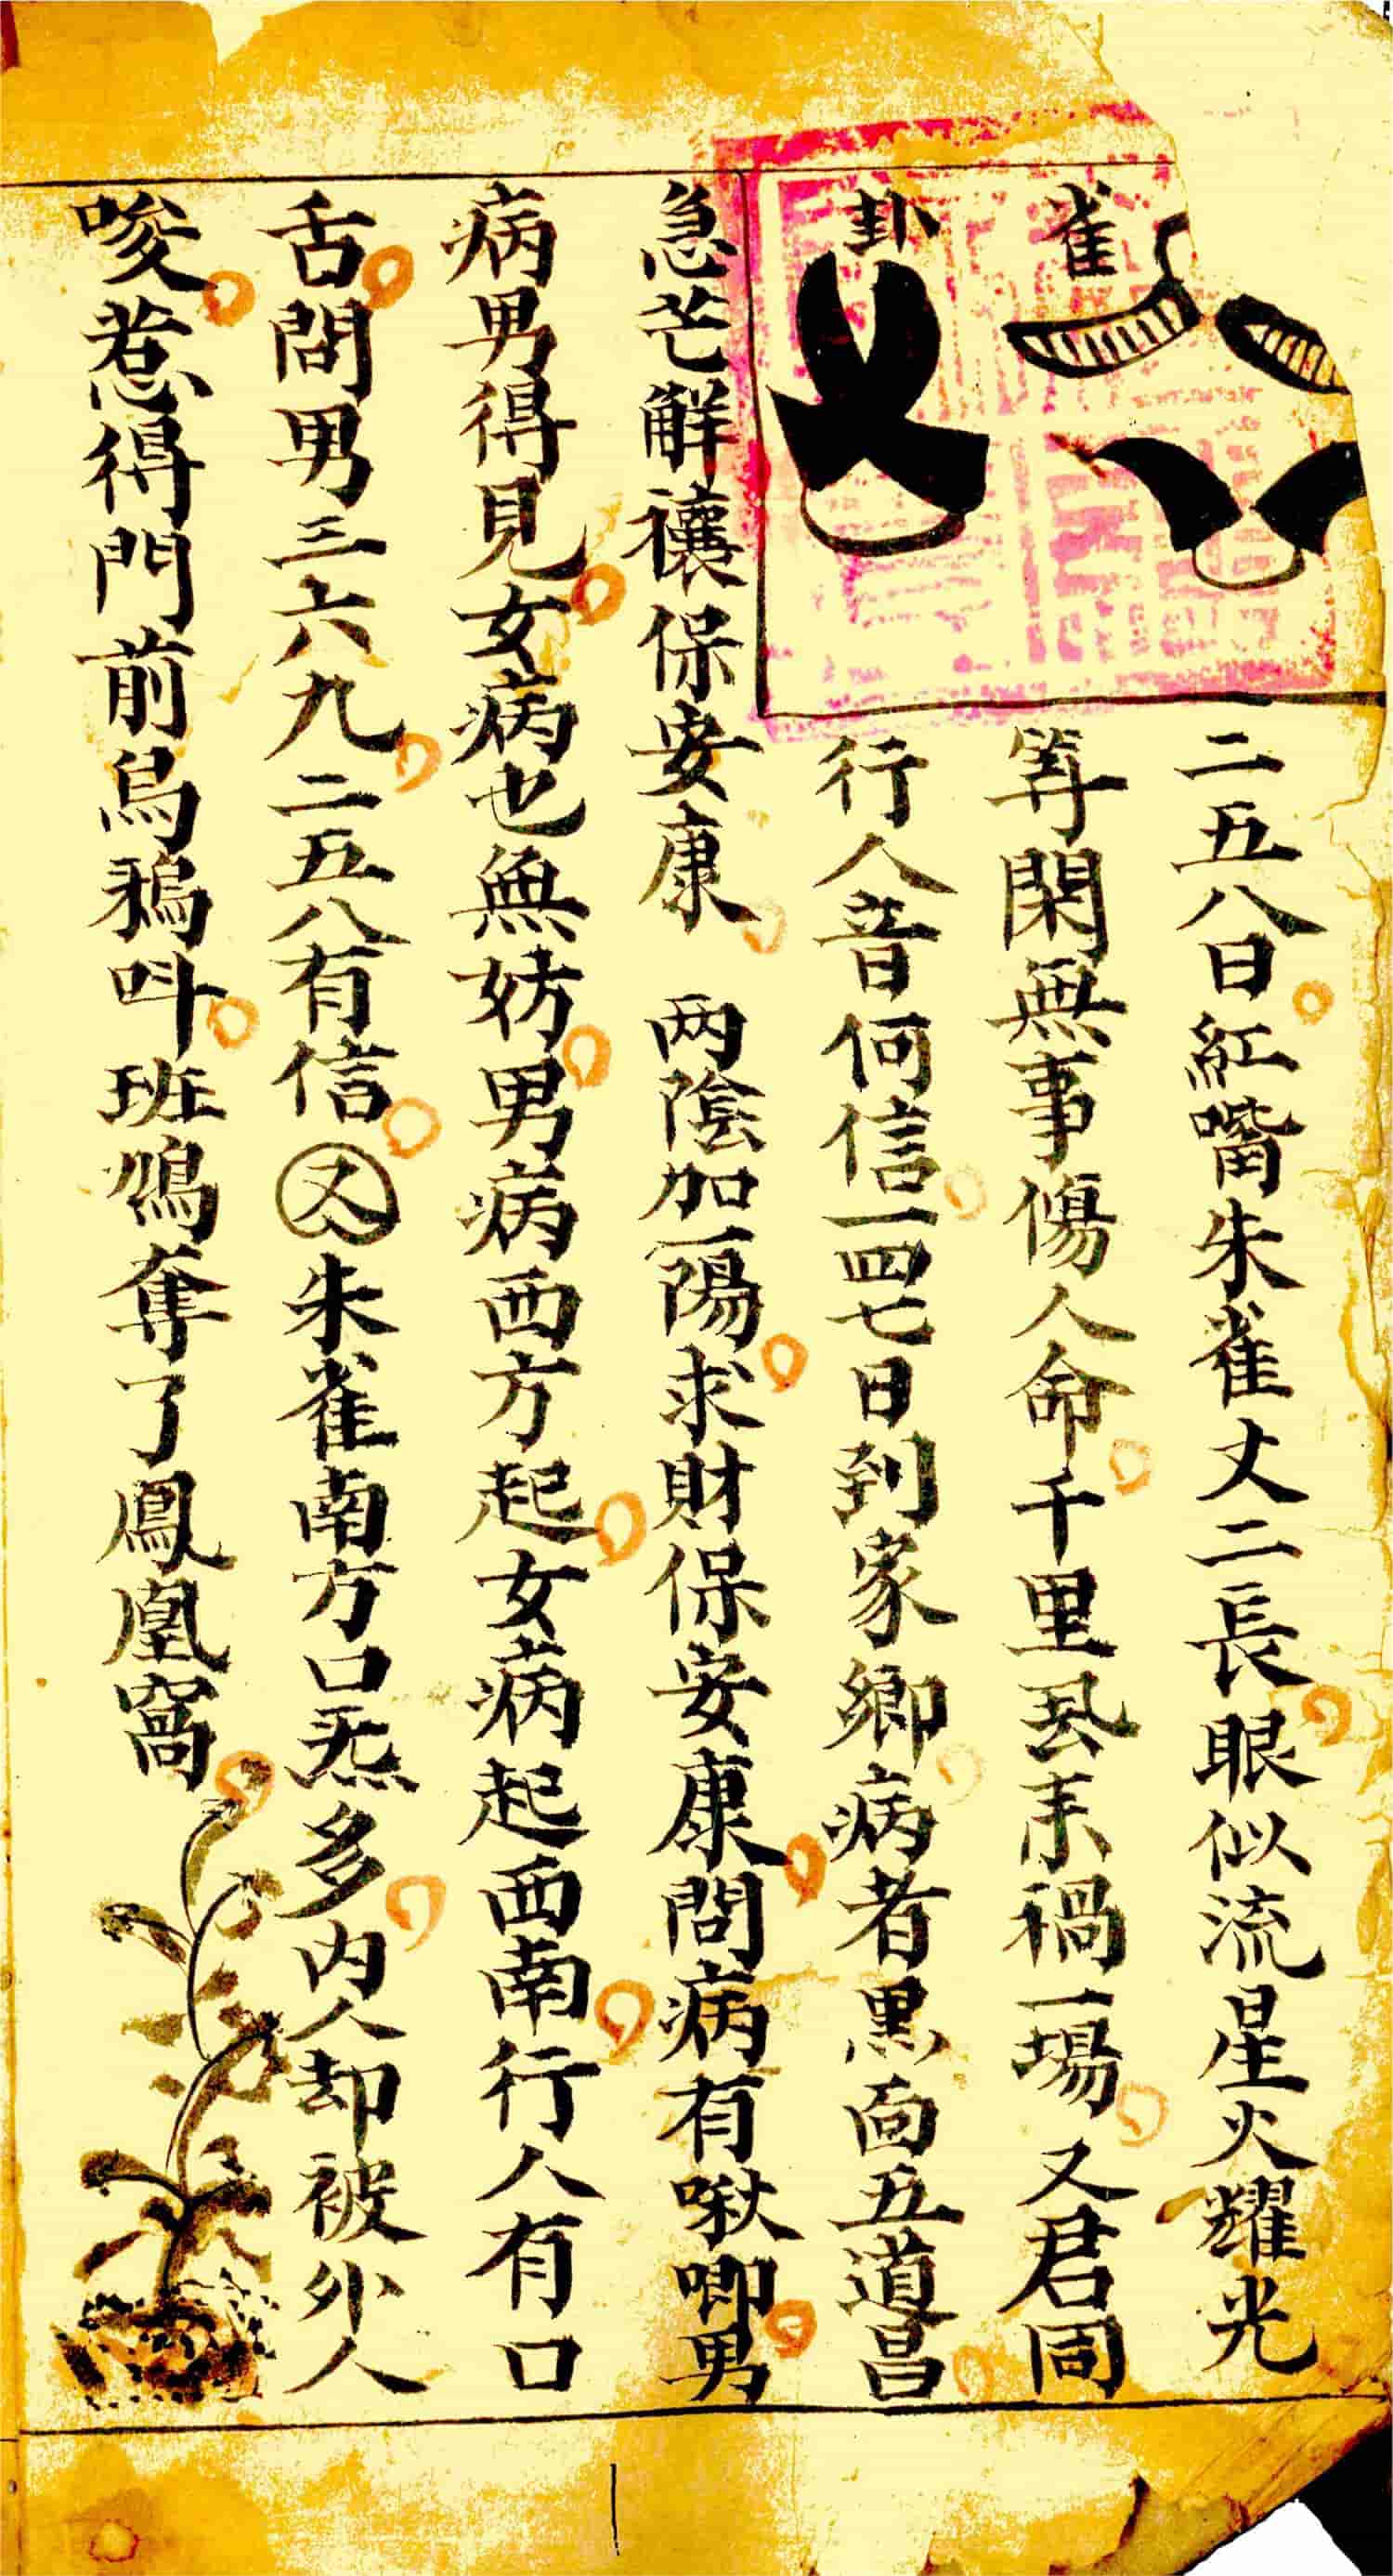 雀
卦
二五八日紅嘴朱雀丈二長眼似流星火耀光
等閑無事傷人命千里風来禍一場 又君同
行人音何信一四七日到家鄉病者黑面五道昌
急芒解禳保安康 两陰加一陽求財保安康問病有啾唧男
病男得見女病也無妨男病西方起女病起西南行人有口
舌問男三六九二五八有信又朱雀南方口炁多内人却被外人
唆惹得門前烏鵶呌班鳩奪了鳳凰窩